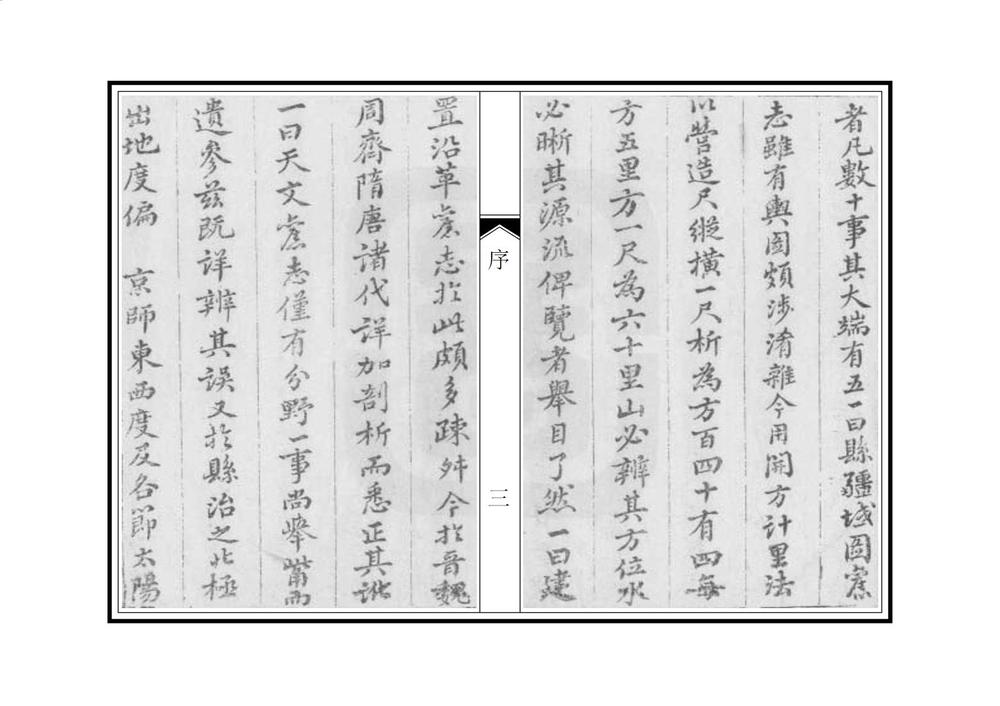 者凡數十事其大端有五一曰縣疆域圖舊
志雖有輿圖頗涉淆雜今用開方計里法
以營造尺縱橫一尺析為方百四十有四每
方五里方一尺為六十里山必辨其方位水
必晰其源流俾覽者舉目了然一曰建
序
三
置沿革舊志於此頗多疎舛今於晉魏
周齊隋唐諸代詳加剖析而悉正其訛
一曰天文舊志僅有分野一事尚舉觜而
遺參茲既詳辨其誤又於縣治之北極
出地度偏 京師東西度及各節太陽